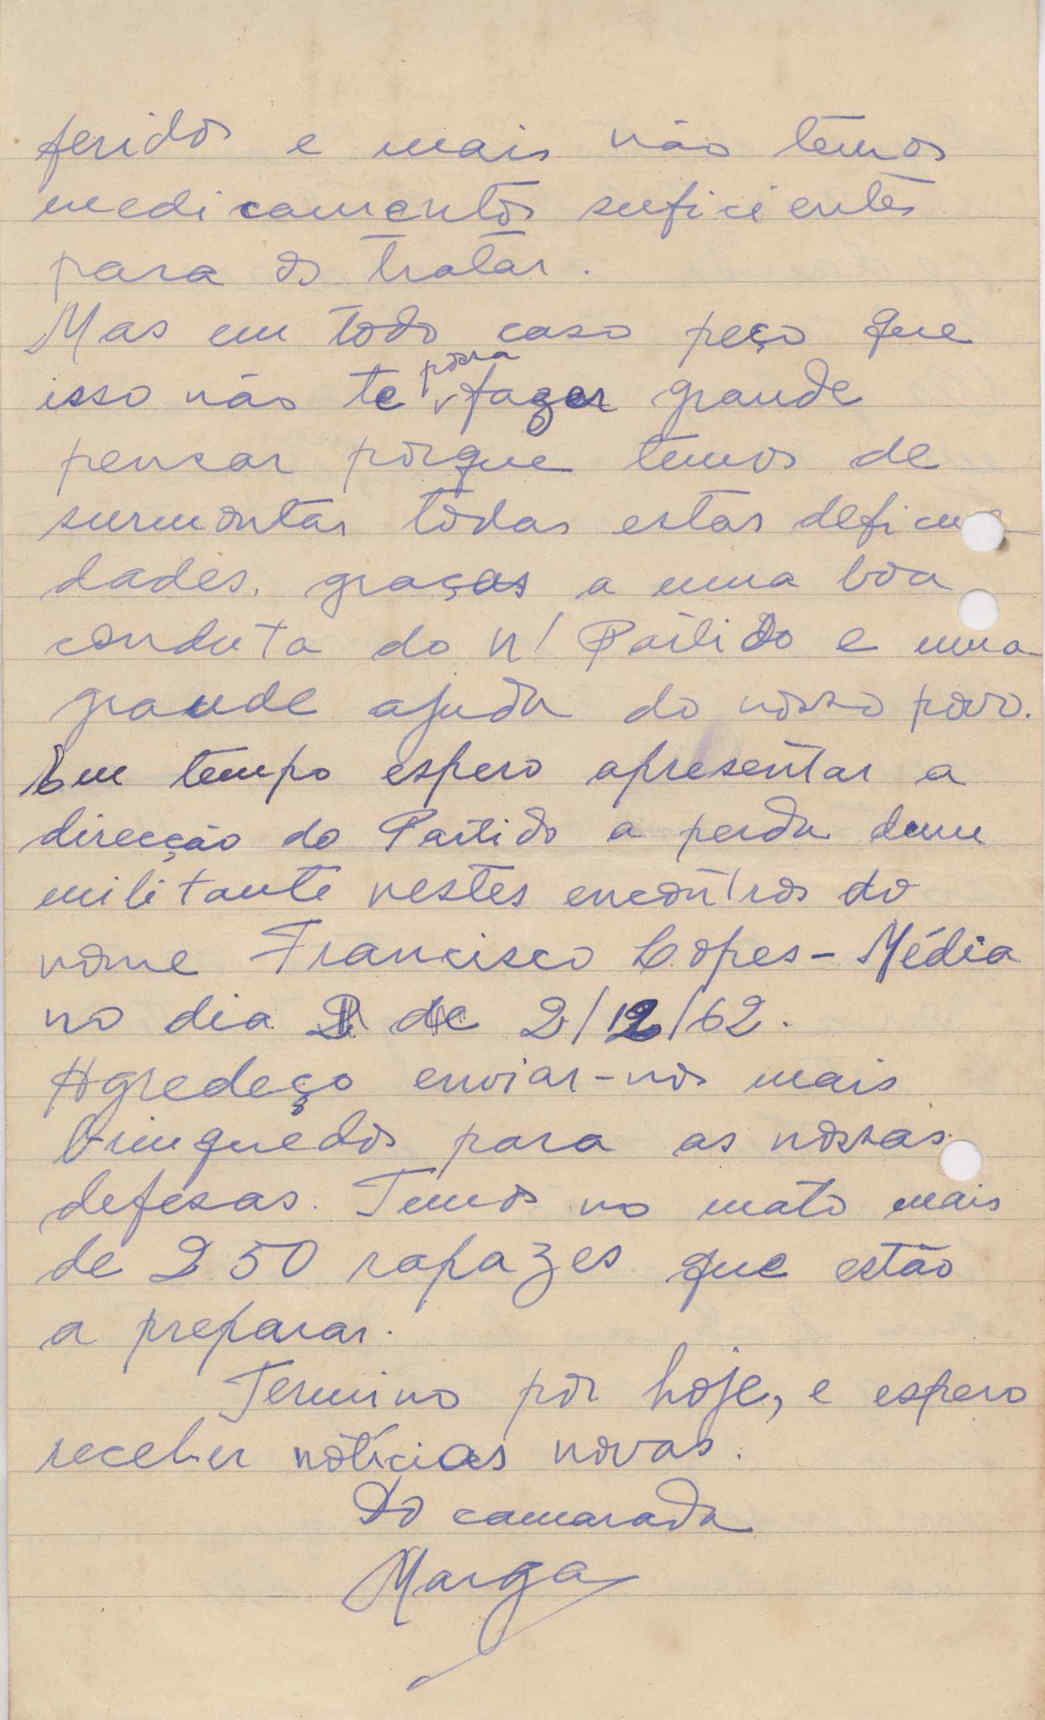 feridos e mais não temos
medicamentos suficientes
para os tratar.
Mas em todo caso peço que
isso não te possa fazer grande
pensar porque temos de
surmontar todas estas
dades. graças a uma boa
conduta do n/ Partido e uma
grande ajuda do nosso povo.
Em tempo espero apresentar a
direcção do Partido a perda dum
militante nestes encontros do
nome Francisco Lopes - Média
no dia de 2/12/62.
Agredeço enviar-nos mais
brinquedos para as nossas
defesas. Temos no mato mais
de 250 rapazes que estão
a preparar.
Termino por hoje, e espero
receber notícias novas.
Do camarada
Marga